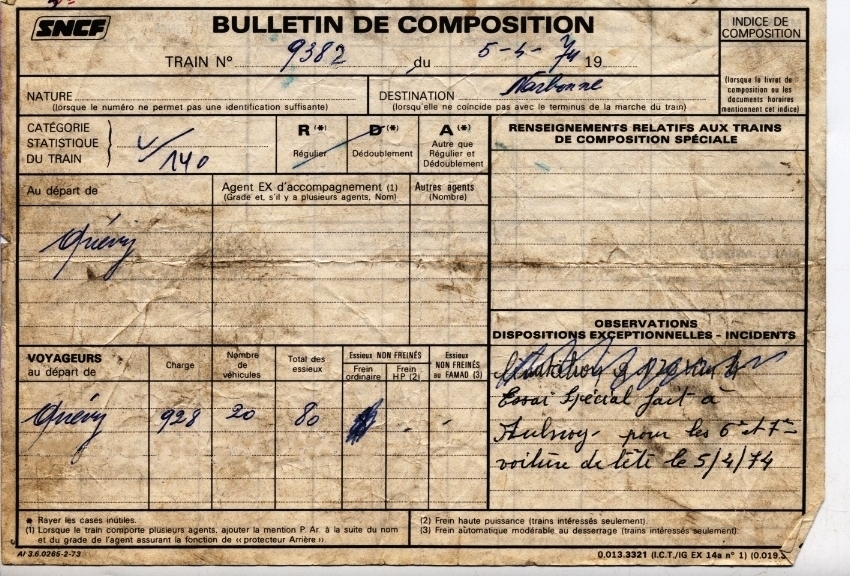 SNCF
BULLETIN DE COMPOSITION
TRAIN N° 9382 du 5-4-74 19
INDICE DE
COMPOSITION
(lorsque le livret de
composition ou les
documents horaires
mentionnent cet indice)
NATURE
(lorsque le numéro ne permet pas une identification suffisante)
DESTINATION Narbonne
(lorsqu'elle ne coïncide pas avec le terminus de la marche du train)
CATÉGORIE
STATISTIQUE
DU TRAIN
V/140
R (*)
Régulier
D (*)
Dédoublement
A (*)
Autre que
Régulier et
Dédoublement
RENSEIGNEMENTS RELATIFS AUX TRAINS
DE COMPOSITION SPÉCIALE
Au départ de
Agent EX d'accompagnement (1)
(Grade et, s'il y a plusieurs agents, Nom)
Autres agents
(Nombre)
Quévy
OBSERVATIONS
DISPOSITIONS EXCEPTIONNELLES - INCIDENTS
Essai Spécial fait à
Aulnoy - pour les 6e et 7e
voiture de tête le 5/4/74
VOYAGEURS
au départ de
Charge
Nombre
de
véhicules
Total des
essieux
Essieux NON FREINÉS
Frein
ordinaire
Frein
H.P (2)
Essieux
NON FREINÉS
au FAMAD (3)
Quévy 928 20 80 - -
* Rayer les cases inutiles.
(1) Lorsque le train comporte plusieurs agents, ajouter la mention P. Ar. à la suite du nom
et du grade de l'agent assurant la fonction de « protecteur Arrière ».
(2) Frein haute puissance (trains intéressés seulement).
(3) Frein automatique modérable au desserrage (trains intéressés seulement).
AI 3.6.0265-2-73
0,013.3321 (I.C.T./IG EX 14a n° 1) (0.019.